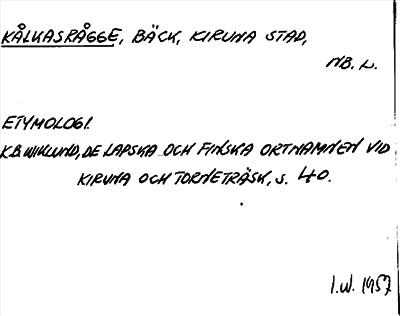 KÅLKASRÅGGE, BÄCK, KIRUNA STAD,
NB. L.
ETYMOLOGI.
K.B. WIKLUND, DE LAPSKA OCH FINSKA ORTNAMNEN VID
KIRUNA OCH TORNETRÄSK, S. 40.
I.W. 1957